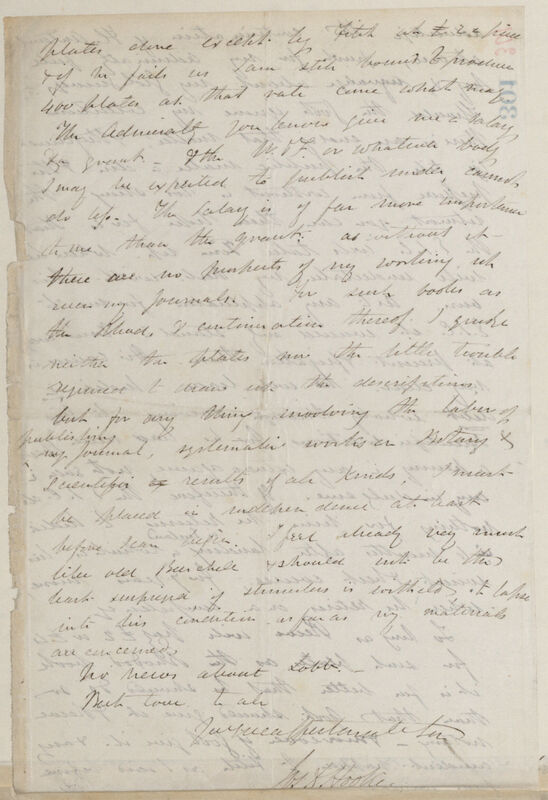 plates done except by Fitch at £2 a piece
& if he fails us I am still bound to produce
400 plates at that rate come what may
The Admiralty you know give me a salary
& a grant — & the W.F. or whatever body
I may be expected to publish under, cannot
do less. The salary is of far more importance
to me than the grant: as without it
there are no prospects of my working up
even my Journals. For such books as
the Rhods. & continuation thereof I grudge
neither the plates nor the little trouble
required to draw up the descriptions,
but for any thing involving the labor of
publishing
my Journal, systematic works on Botany &
Scientific results of all kinds, I must
be placed in independence at least
before I can begin. I feel already very much
like old Burchell & should not be the
least surprized if stimulus is withheld, to lapse
into his condition as far as my materials
are concerned.
No news about Lobb.
Best love to all
Your affectionate Son
Jos D Hooker